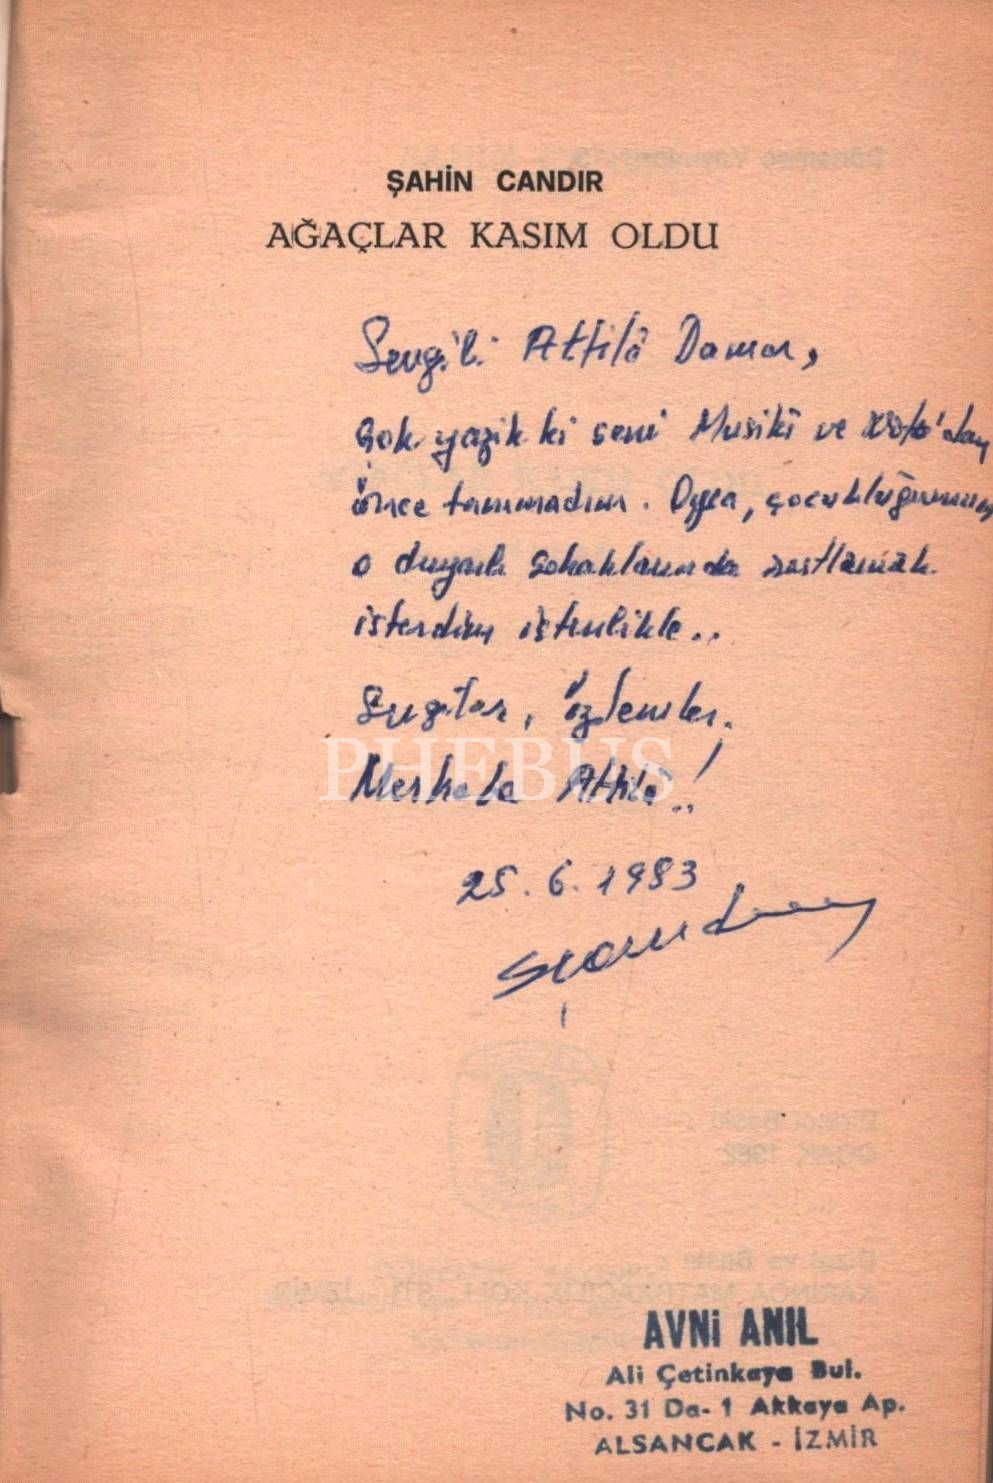 ŞAHİN CANDIR
AĞAÇLAR KASIM OLDU
Sevgili Attilâ Damar,
Çok yazık ki seni Musiki ve Nota'dan
önce tanımadım. Oysa, çocukluğumun
o duyarlı sokaklarında rastlamak
isterdim içtenlikle..
Saygılar, özlemler.
Merhaba Attilâ..!
25.6.1983
PHEBUS
AVNİ ANIL
Ali Çetinkaya Bul.
No. 31 Da-1 Akkaya Ap.
ALSANCAK - İZMİR